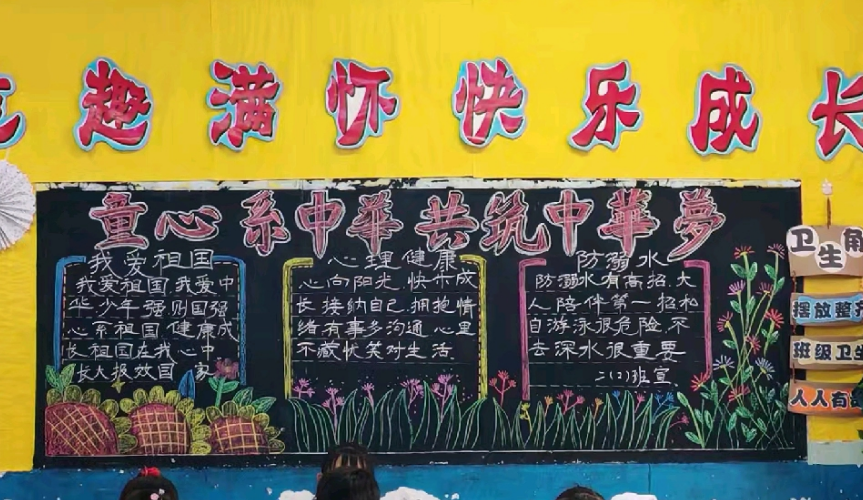 趣满怀快乐成长
童心系中华共筑中華夢
我爱祖国
我爱祖国我爱中
华少年强则国强
心系祖国健康成
长祖国在我心中
长大报效国家
心理健康
心向阳光,快乐成
长接纳自己,拥抱情
绪有事多沟通心里
不藏忧笑对生活
防溺水
防溺水有高招,大
人陪伴第一招私
自游泳很危险,不
去深水很重要
二(2)班宣
卫生角
摆放整齐
班级卫生
人人有